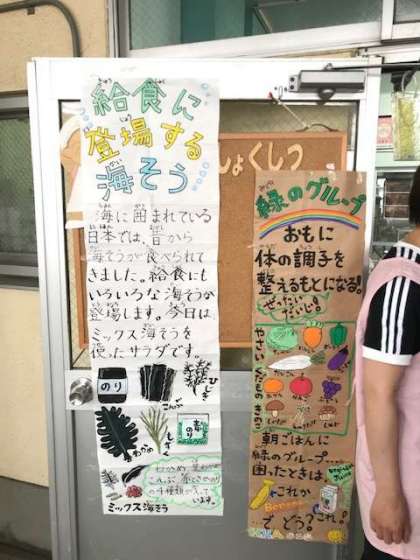 給食に
登場する
海そう
海に囲まれている
日本では、昔から
海そうが食べられて
きました。給食にも
いろいろな海そうが
登場します。今日は
ミックス海そうを
使ったサラダです。
のり
こんぶ
ひじき
わかめ
もずく
青のり
わかめ
こんぶ
の4種類が入って
います。
ミックス海そう
しょくしつ
緑のグループ
おもに
体の調子を
整えるもとになる!
ぜったい
だいじ!
やさい
くだもの
きのこ
朝ごはんに
緑のグループ……
困ったときは
これか
Banana
これ。
で どう?